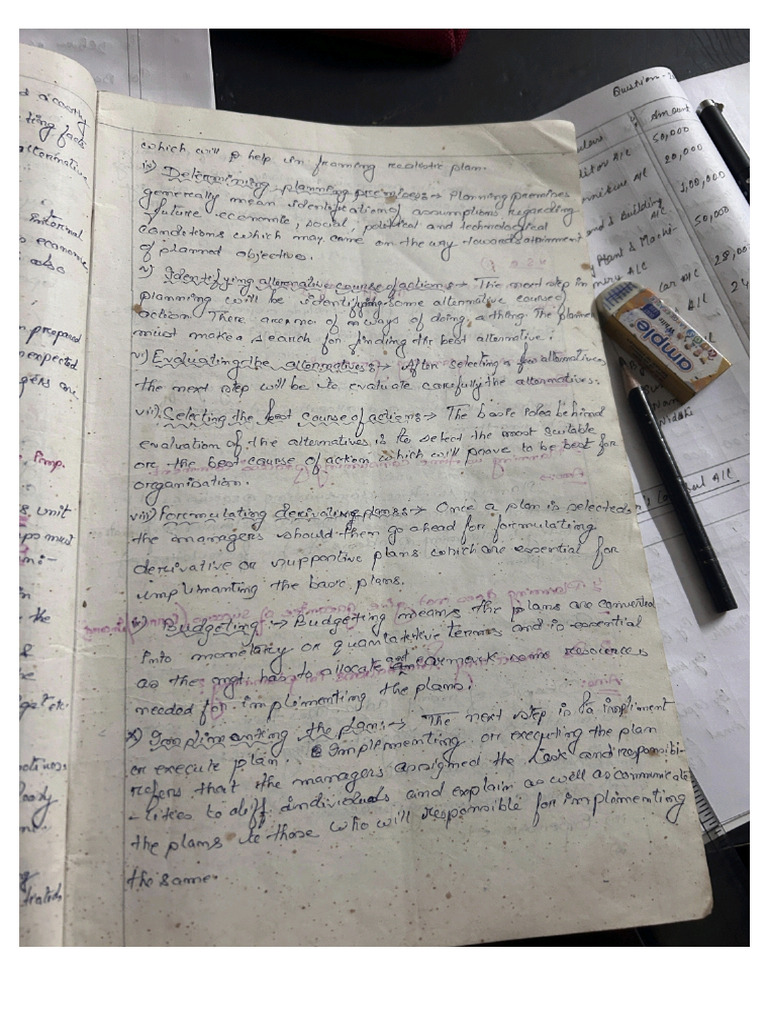 which will help in framing realistic plan.
iv) Determining planning premises:→ Planning premises
generally mean identification of assumptions regarding
future economic, social, political and technological
conditions which may come on the way towards attainment
of planned objective.
v) Identifying alternative course of actions→ The next step in
planning will be identifying some alternative course of
action. There are no of ways of doing a thing. The planner
must make a search for finding the best alternative.
vi) Evaluating the alternatives:→ After selecting a few alternatives
the next step will be to evaluate carefully the alternatives.
vii) Selecting the best course of actions→ The basic idea behind
evaluation of the alternatives is to select the most suitable
or the best course of action which will prove to be best for
organisation.
viii) Formulating derivative plans:→ Once a plan is selected
the managers should then go ahead for formulating
derivative or supportive plans which are essential for
implimanting the basic plans.
ix) Budgeting:→ Budgetting means the plans are converted
into monetary or quantitative terms and is essential
as the mgt. has to allocate and earmark some resources
needed for implimenting the plans.
x) Implimenting the plan:→ The next step is to impliment
or execute plan. Implementing or executing the plan
refers that the managers assigned the task and responsibi-
-lities to diff individuals and explain as well as communicate
the plans to those who will responsible for implimenting
the same.
Question-
Amount
50,000
20,000
1,00,000
& Building
A/c
50,000
Plant & Machi-
nery A/c
28,000
A/c
ample
White
unit
must
the
prepared
expected
economic
also
internal